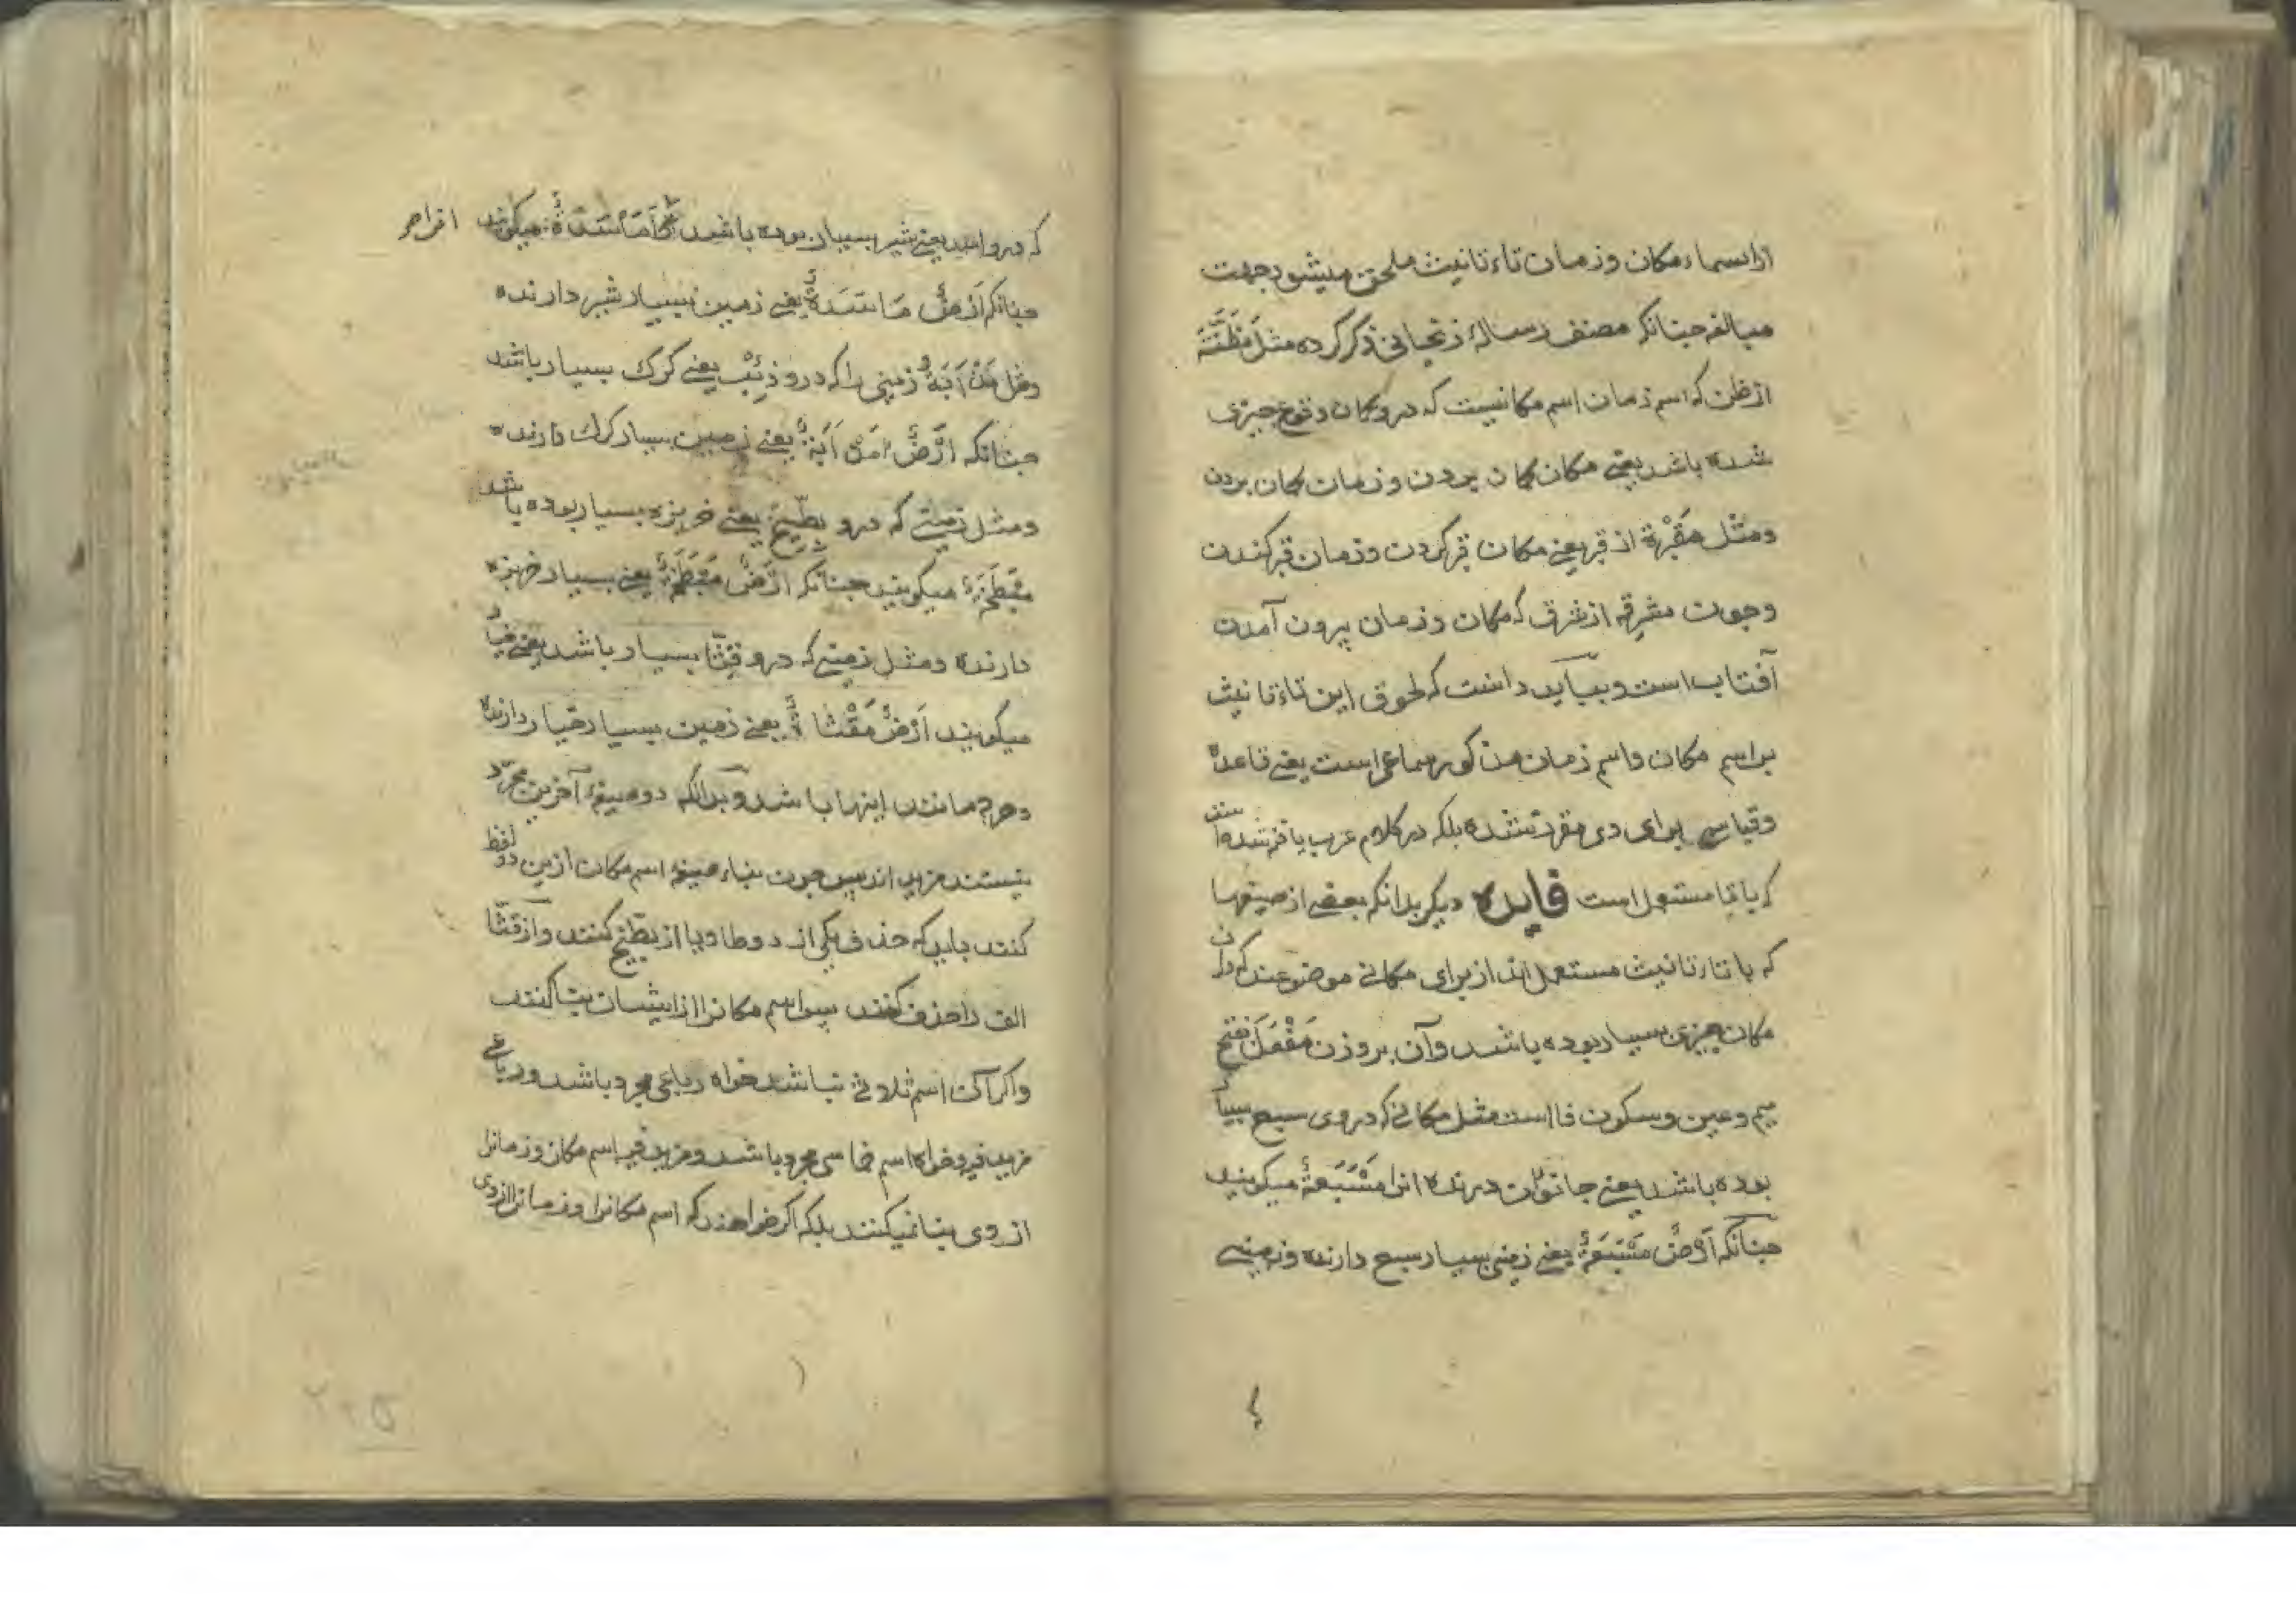 از اسماء مکان و زمان تاء تانیث ملحق میشود جهت
مبالغه چنانکه مصنف رسالهٔ زنجانی ذکر کرده مثل مَظَنَّة
از ظن که اسم زمان اسم مکانیست که درو کمان وقوع چیزی
شده باشد یعنی مکان کمان بردن و زمان کمان بردن
ومثل مَقْبُرة از قبر یعنی مکان قبر کردن وزمان قبر کندن
وچون مشرقه از شرق که مکان وزمان بیرون آمدن
آفتاب است و بباید دانست که لحوق این تاء تانیث
بر اسم مکان واسم زمان مذکور سماعی است یعنی قاعده
وقیاسی برای وی مقرر نشده بلکه در کلام عرب یافته شده
که با تا مستعمل است فایده دیکر بدانکه بعضی از صیغها
که با تاء تانیث مستعمل اند از برای مکانی موضوعند که در ان
مکان چیزی بسیار بوده باشد وآن بر وزن مَفْعَلَة بفتح
میم وعین وسکون فا است مثل مکانی که در وی سبع بسیار
بوده باشد یعنی جانوران درنده انرا مَسْبَعَةٌ میکویند
چنانکه اَرْضٌ مَسْبَعَةٌ یعنی زمین بسیار سبع دارنده وزمینی
که درو اسد یعنی شیر بسیار بوده باشد مَأْسَدَةٌ میکویند
چنانکه اَرْضٌ مَاسَدَةٌ یعنی زمین بسیار شیر دارنده
ومثل مَذْأَبَةٌ زمینی را که درو ذِئْب یعنی کرک بسیار باشد
چنانکه اَرْضٌ مَذْأَبَةٌ یعنی زمین بسیار کرک دارنده
ومثل زمینی که درو بطّیخ یعنی خربزه بسیار بوده باشد
مَبْطَخَةٌ میکویند چنانکه اَرْضٌ مَبْطَخَةٌ یعنی بسیار خربزه
دارنده ومثل زمینی که درو قِثّا بسیار باشد یعنی خیار
میکویند اَرْضٌ مَقْثَأةٌ یعنی زمین بسیار خیار دارنده
وهرچه مانند اینها باشد و بدانکه دو صیغهٔ آخرین مجرّد
نیستند مزید اند پس چون بناء صیغه اسم مکان ازین دو لفظ
کنند باید که حذف یکی از دو طا ویا از بطّیخ کنند واز قثّا
الف را حذف کنند پس اسم مکانرا از ایشان بنا کنند
واکر آن اسم ثلاثی نباشد خواه رباعی مجرد باشد ورباعی
مزید فیه وخواه اسم خماسی مجرد باشد ومزید فیه اسم مکان وزمانرا
از وی بنا نمیکنند بلکه اکر خواهند که اسم مکانرا وزمانرا از وی
۲۰۵